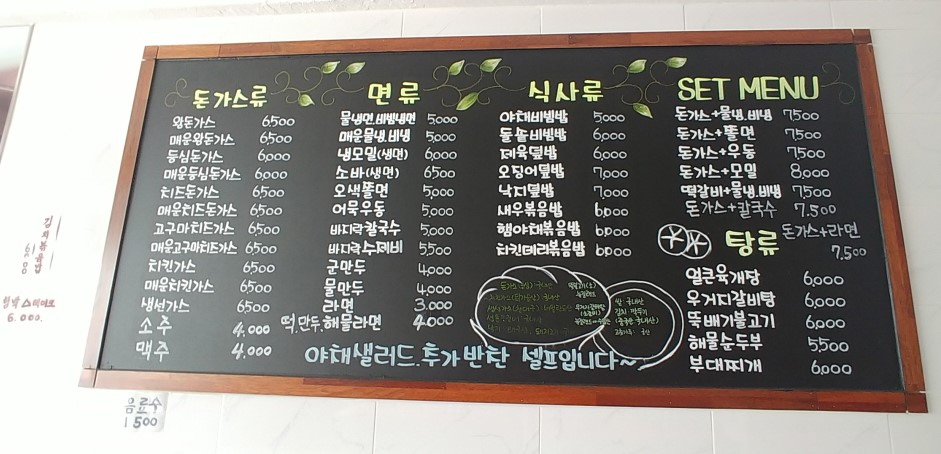 돈가스류
왕돈가스 6,500
매운왕돈가스 6,500
등심돈가스 6,000
매운등심돈가스 6,000
치드돈가스 6500
매운치드돈가스 6500
고구마치드가스 6500
매운고구마치드가스 6500
치킨가스 6500
매운치킨가스 6500
생선가스 6500
소주 4,000
맥주 4,000
면류
물냉면.비빔냉면 5,000
매운물냉.비냉 5,000
냉모밀(생면) 6,000
소바(생면) 6500
오색쫄면 5,000
어묵우동 5,000
바지락칼국수 5,000
바지락수제비 5,500
군만두 4,000
물만두 4,000
라면 3,000
떡,만두,해물라면 4,000
식사류
야채비빔밥 5,000
돌솥비빔밥 6,000
제육덮밥 6,000
오징어덮밥 7,000
낙지덮밥 7,000
새우볶음밥 6,000
햄야채볶음밥 6,000
치킨데리볶음밥 6,000
SET MENU
돈가스+물냉.비냉 7500
돈가스+쫄면 7500
돈가스+우동 7500
돈가스+모밀 8,000
떡갈비+물냉.비냉 7500
돈가스+칼국수 7.500
돈가스+라면
7.500
탕류
얼큰육개장 6,000
우거지갈비탕 6,000
뚝배기불고기 6,000
해물순두부 5,500
부대찌개 6,000
쌀:국내산
야채샐러드.추가반찬 셀프입니다~
음료수
1500
6.000.